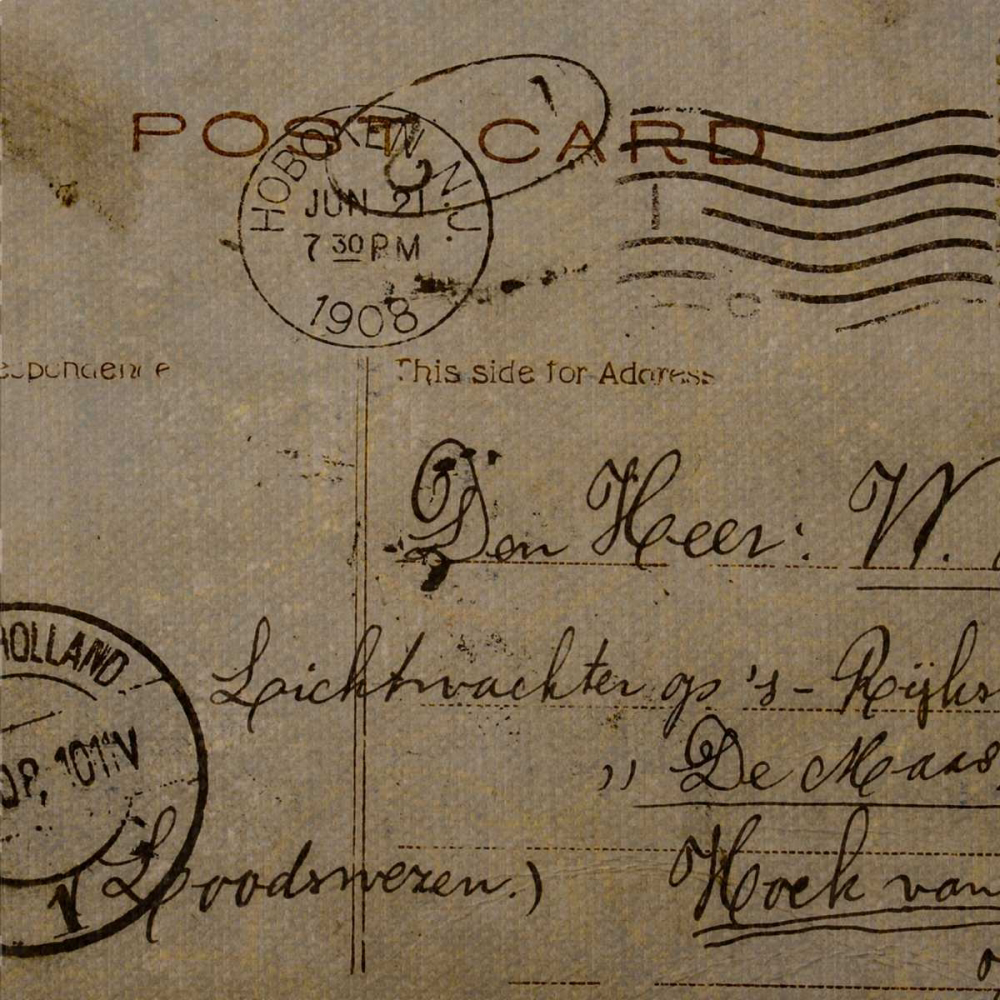 POST CARD
HOBOKEN, N.J.
JUN 21
7 30 PM
1908
This side for Address
Den Heer: W.
HOLLAND
Lichtwachter op 's-Rijks
,, De Maas
Loodswezen.) Hoek van